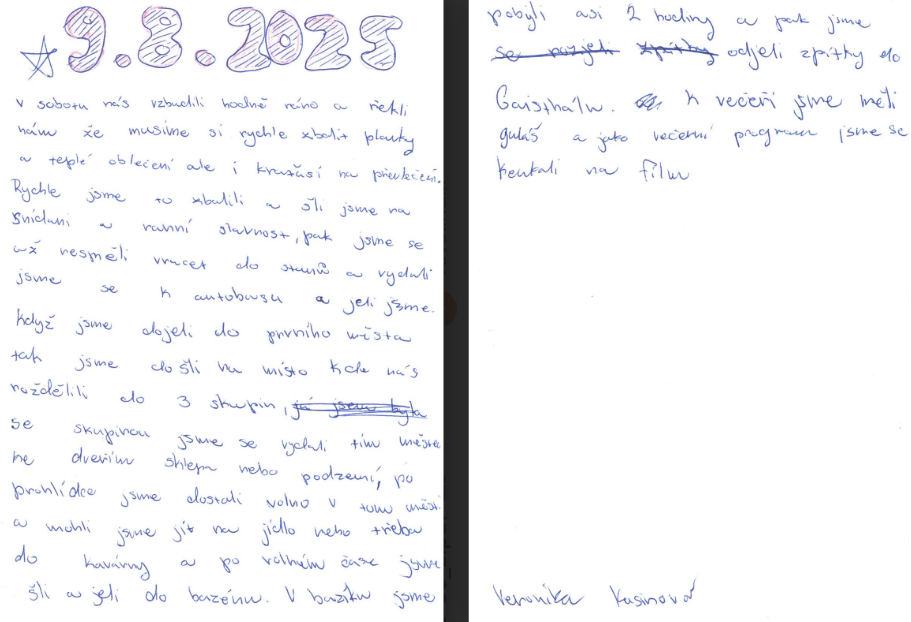 9.8.2025
v sobotu nás vzbudili hodně ráno a řekli
nám že musíme si rychle zbalit plavky
a teplé oblečení ale i kraťasi na převlečení.
Rychle jsme to zbalili a šli jsme na
snídani a ranní slavnost, pak jsme se
už nesměli vracet do stanů a vydali
jsme se k autobusu a jeli jsme.
Když jsme dojeli do prvního města
tak jsme došli na místo kde nás
rozdělili do 3 skupin, já jsem byla
se skupinou jsme se vydali tím městem
ke dveřím sklepa nebo podzemí, po
prohlídce jsme dostali volno v tom městě
a mohli jsme jít na jídlo nebo třeba
do kavárny a po volném čase jsme
šli a jeli do bazénu. V bazénu jsme
pobyli asi 2 hodiny a pak jsme
se rozjeli zpítky odjeli zpítky do
Gaisthálu. K večeři jsme měli
guláš a jako večerní program jsme se
koukali na film
Veronika Kasinová